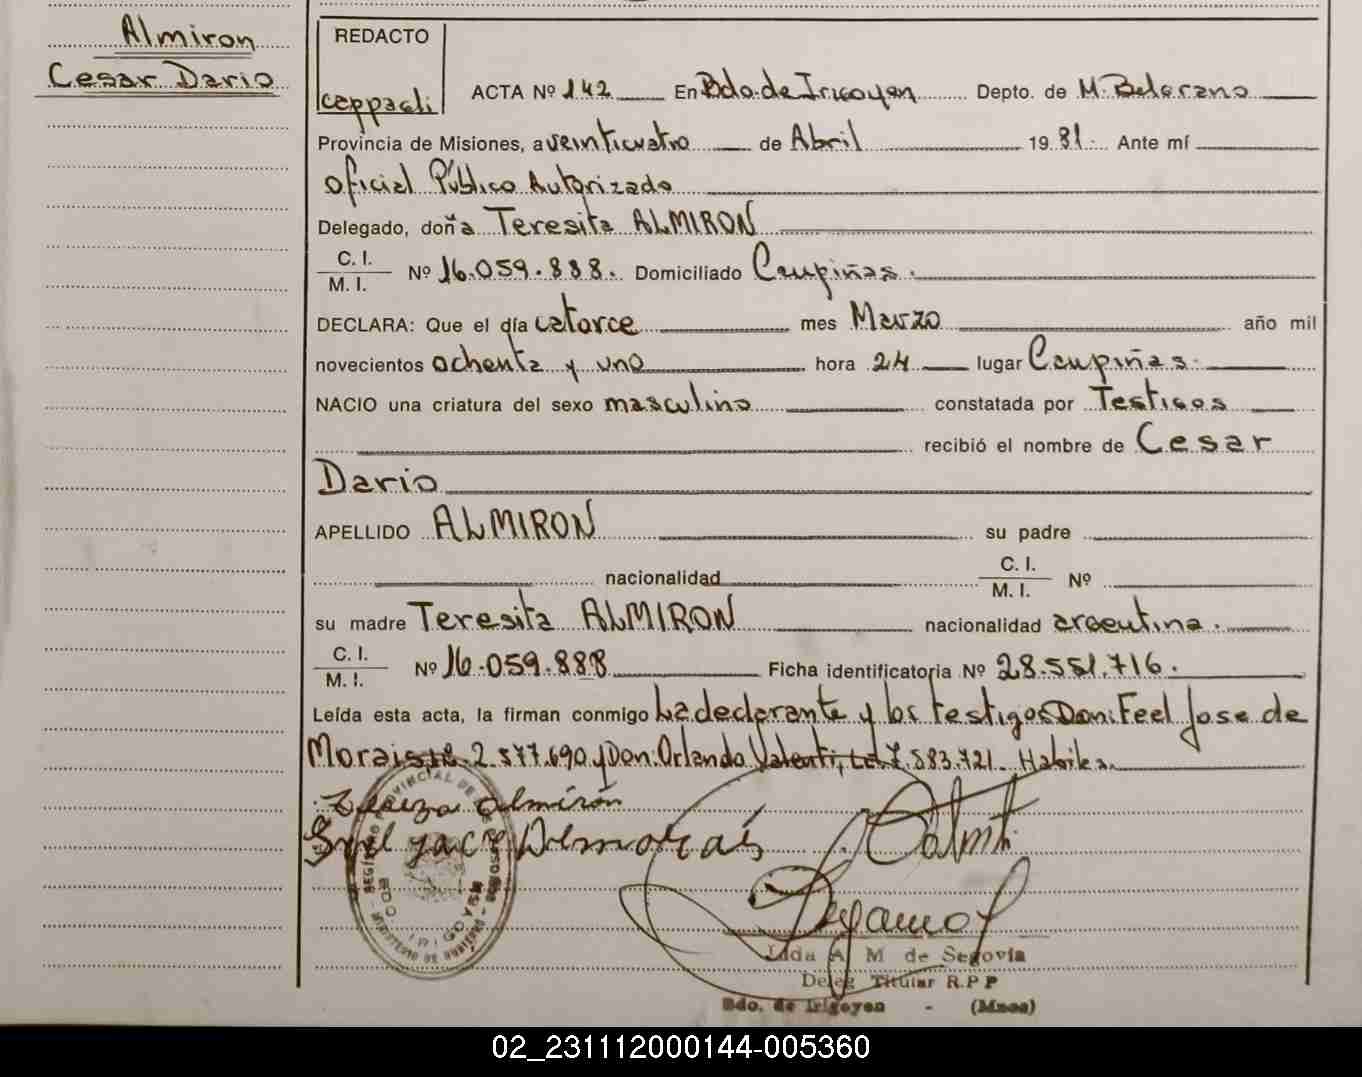 Almiron
Cesar Dario
REDACTO
ceppagli
ACTA Nº 142 En Bdo. de Irigoyen Depto. de M. Belgrano
Provincia de Misiones, a veinticuatro de Abril 1981. Ante mí
Oficial Público Autorizado
Delegado, doña Teresita ALMIRON
C. I.
M. I.
Nº 16.059.888. Domiciliado Caupiñas.
DECLARA: Que el día catorce mes Marzo año mil
novecientos ochenta y uno hora 24 lugar Caupiñas.
NACIO una criatura del sexo masculino constatada por Testigos
recibió el nombre de Cesar
Dario
APELLIDO ALMIRON su padre
nacionalidad C. I.
M. I. Nº
su madre Teresita ALMIRON nacionalidad argentina.
C. I.
M. I.
Nº 16.059.888 Ficha identificatoria Nº 28.551.716.
Leída esta acta, la firman conmigo La declarante y los testigos Don: Feel Jose de
Morais 2.577.690 y Don: Orlando Valenti, 7.583.721.
almirón
Lida A M de Segovia
Deleg Titular R.P.P
Bdo. de Irigoyen - (Mnes)
02_231112000144-005360